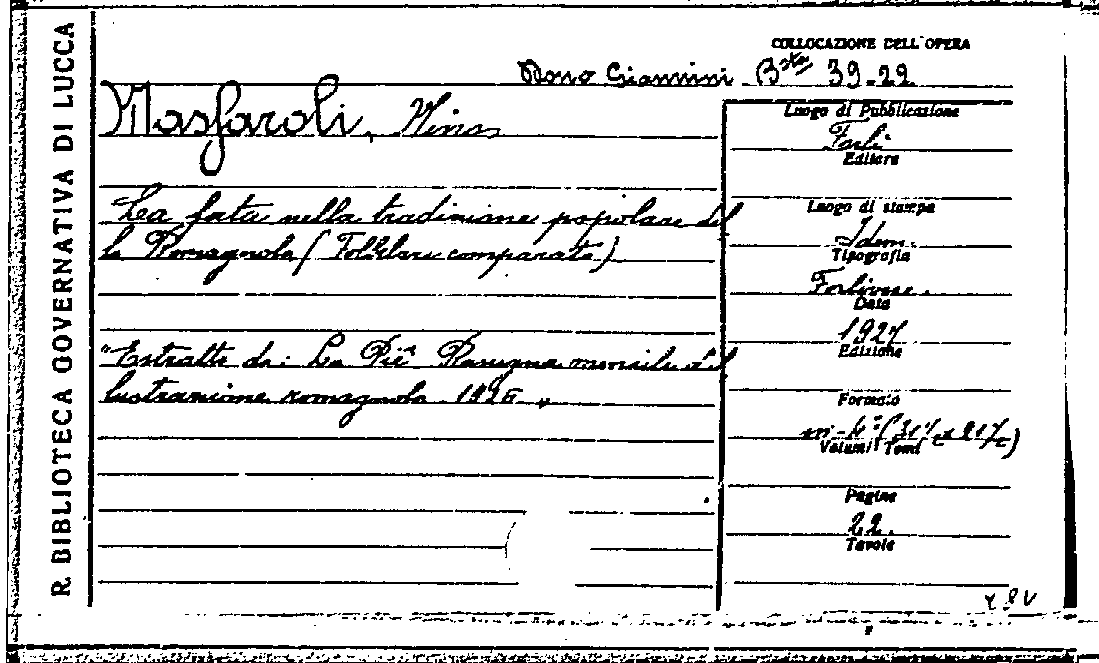 R. BIBLIOTECA GOVERNATIVA DI LUCCA
COLLOCAZIONE DELL'OPERA
Dono Giannini Bsta 39-29
Masfaroli, Nino
La fata nella tradizione popolare del
la Romagnola (Folklore comparato)
"Estratto da: La Piê Rassegna mensile d'il
lustrazione romagnola 1926 "
Luogo di Pubblicazione
Forlì
Editore
Luogo di stampa
Idem.
Tipografia
Forlivese.
Data
1927
Edizione
Formato
in-4° (31/c x 21/c)
Volumi Tomi
Pagine
22.
Tavole